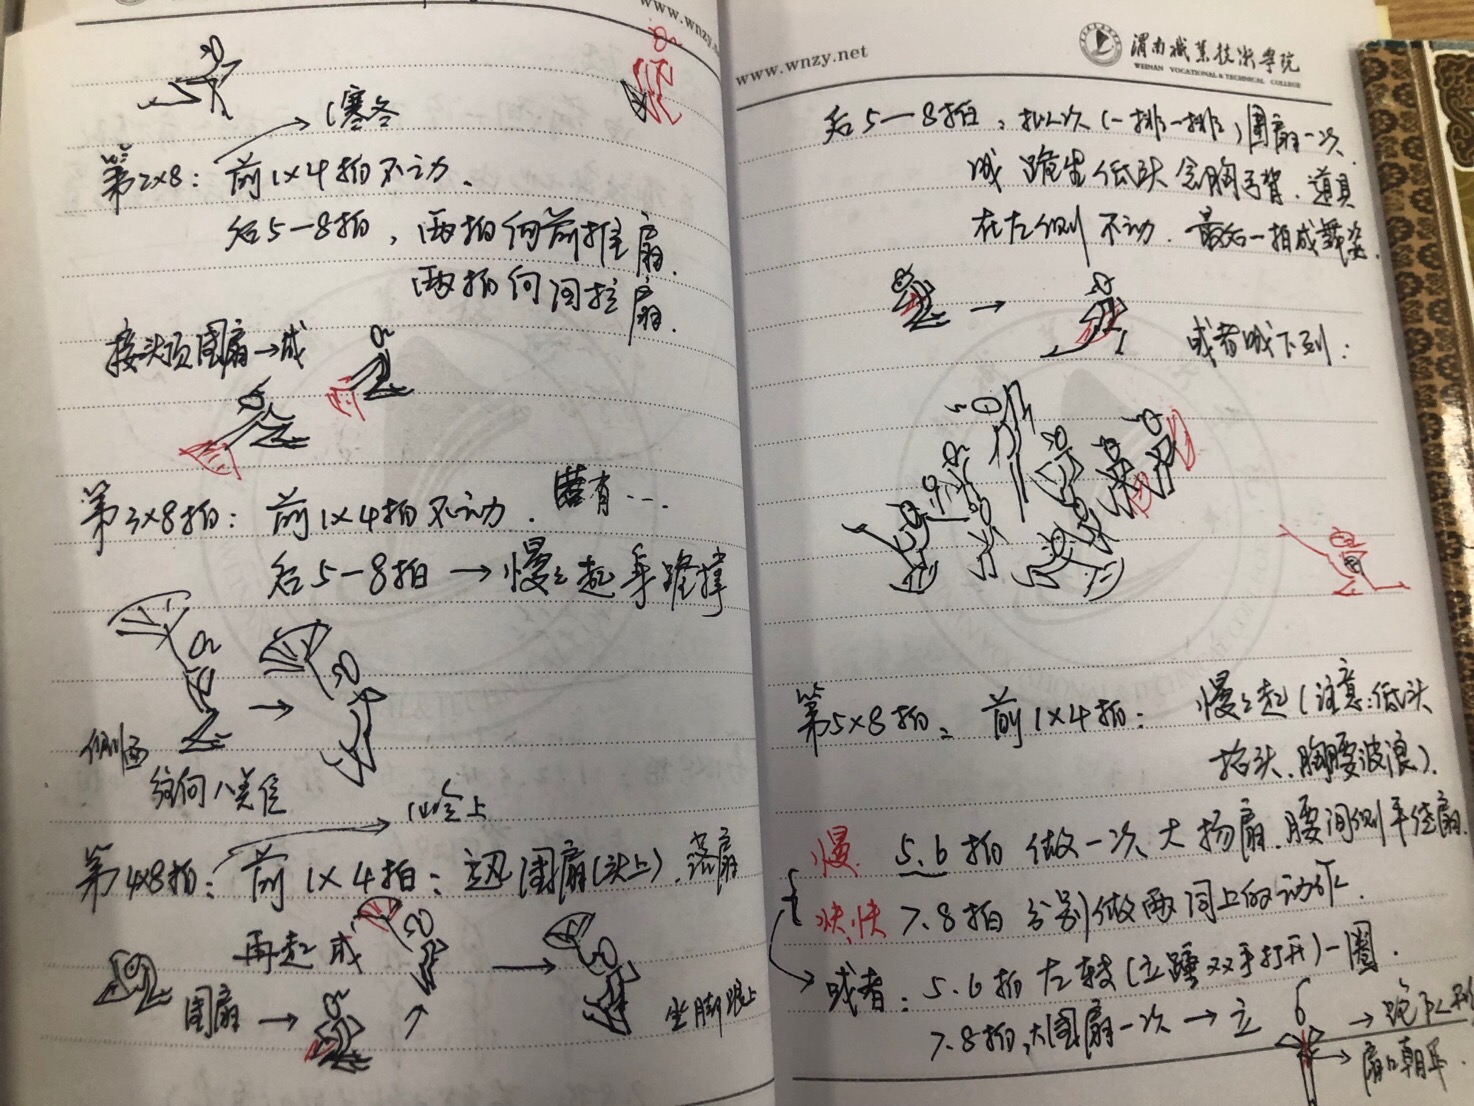 www.wnzy.net
(寒冬
第2×8: 前1×4拍不动、
后5—8拍, 两拍向前推扇.
两拍向回拉扇.
接头顶围扇→成
第3×8拍: 前1×4拍不动. 唐有…
后5—8拍 → 慢慢起 单跪撑
侧面
往向八点位
第4×8拍: 前1×4拍: 围扇(头上). 落扇
再起 成
围扇 →
坐脚跟上
www.wnzy.net
渭南职业技术学院
WEINAN VOCATIONAL & TECHNICAL COLLEGE
后5—8拍, (一排一排)围扇一次.
成 跪坐低头含胸弓背. 道具
在左侧不动. 最后一拍成舞姿.
或者成下列:
第5×8拍: 前1×4拍: 慢慢起(注意:低头
抬头、胸腰波浪).
慢 5.6拍 做一次大扬扇.
快快 7.8拍 分别做两同上的动作.
或者: 5.6拍左转(立踵双手打开)一圈.
7.8拍,大围扇一次 → 立